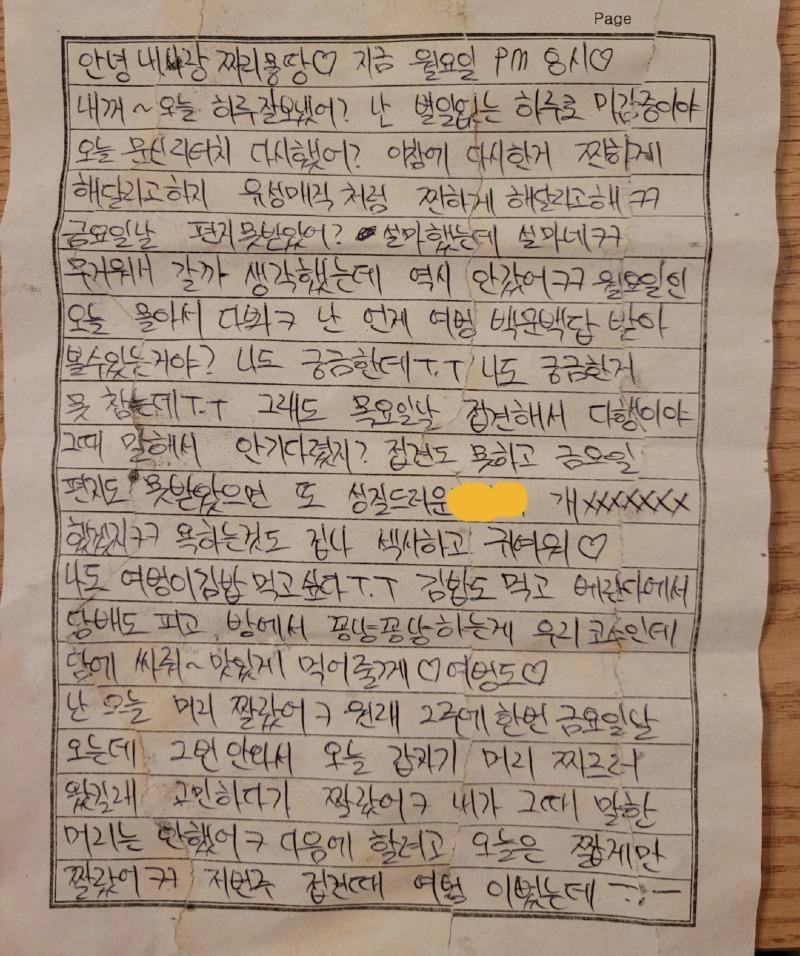 Page
안녕 내사랑 찌리몽땅♡ 지금 월요일 PM 8시♡
내꺼~ 오늘 하루 잘보냈어? 난 별일없는 하루로 마감중이야
오늘 문신 리터치 다시했어? 이참에 다시한거 찐하게
해달라고하지 유성매직 처럼 찐하게 해달라고해 ㅋㅋ
금요일날 편지 못받았어? 설마했는데 설마네ㅋㅋ
무거워서 갈까 생각했는데 역시 안갔어ㅋㅋ 월요일인
오늘 몰아서 다봐ㅋ 난 언제 여벙 백문백답 받아
볼수있는거야? 나도 궁금한데 T.T 나도 궁금한거
못 참는데 T.T 그래도 목요일날 접견해서 다행이야
그때 말해서 안기다렸지? 접견도 못하고 금요일
편지도 못받았으면 또 성질드러운 개xxxxxxx
했겠지ㅋㅋ 욕하는것도 겁나 섹시하고 귀여워♡
나도 여벙이김밥 먹고싶다 T.T 김밥도 먹고 베란다에서
담배도 피고 방에서 퐁냥퐁냥하는게 우리 코스인데
담에 싸줘~ 맛있게 먹어줄게♡ 여벙도♡
난 오늘 머리 짤랐어ㅋ 원래 2주에 한번 금요일날
오는데 그먼 안와서 오늘 갑자기 머리 짜르러
왔길래 고민하다가 짤랐어ㅋ 씨가 그때 말한
머리는 안했어ㅋ 다음에 할려고 오늘은 짧게만
짤랐어ㅋㅋ 저번주 접견때 여벙 이뻤는데 ㅡ.ㅡ